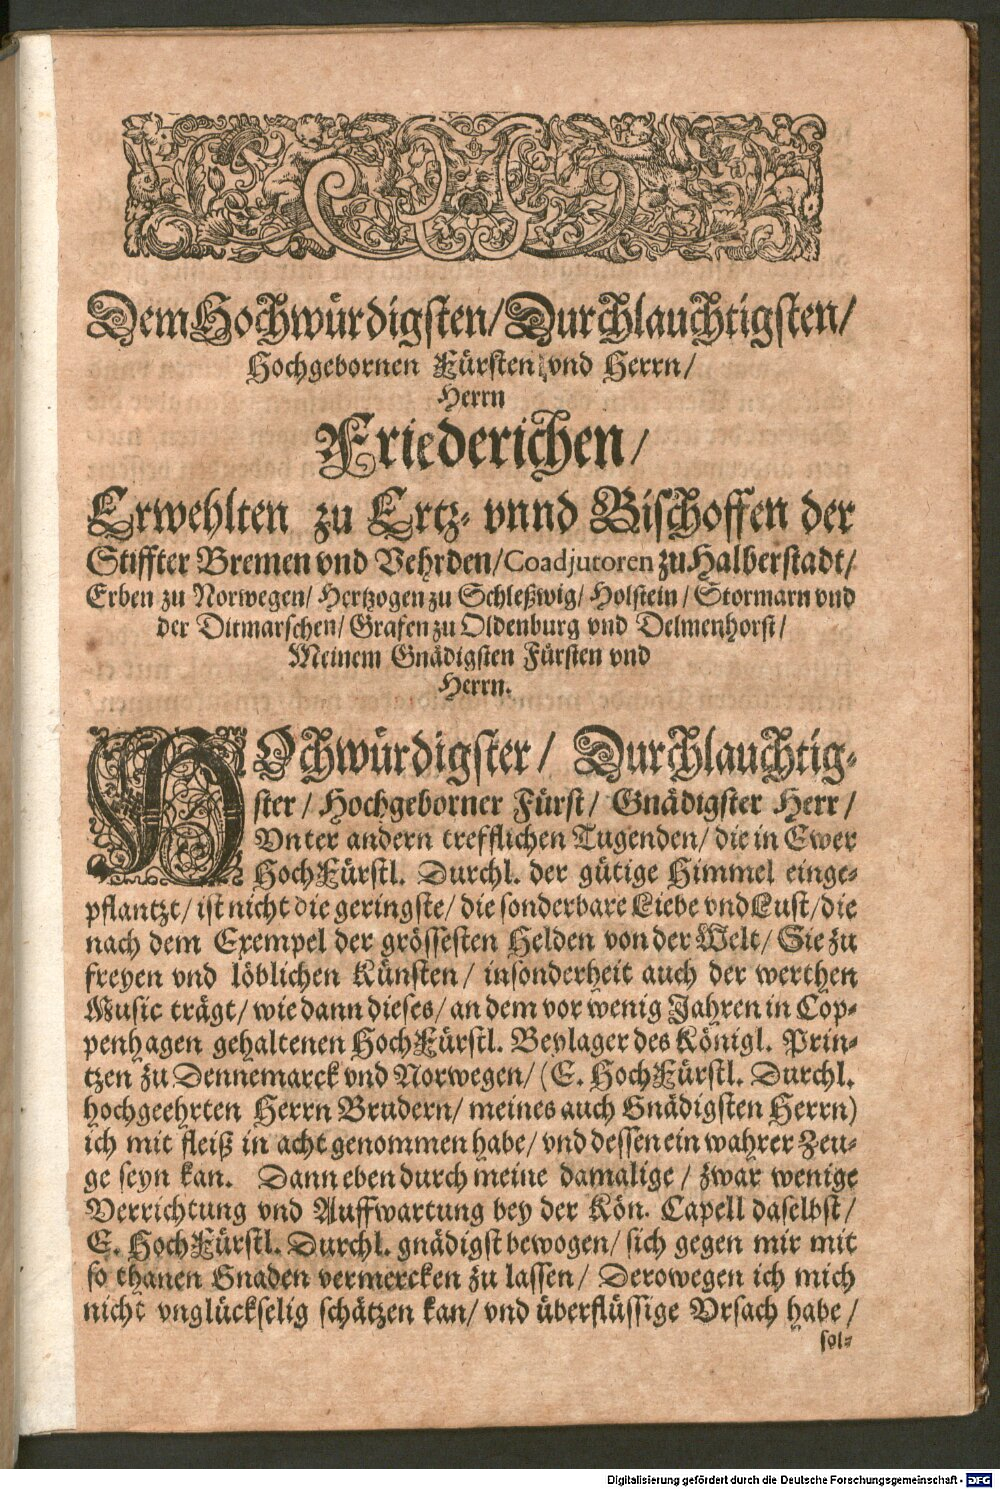 Dem Hochwürdigsten/ Durchlauchtigsten/
Hochgebornen Fürsten vnd Herrn/
Herrn
Friederichen/
Erwehlten zu Ertz- vnnd Bischoffen der
Stiffter Bremen vnd Vehrden/ Coadjutoren zu Halberstadt/
Erben zu Norwegen/ Hertzogen zu Schleßwig/ Holstein/ Stormarn vnd
der Ditmarschen/ Grafen zu Oldenburg vnd Delmenhorst/
Meinem Gnädigsten Fürsten vnd
Herrn.
HOchwürdigster/ Durchlauchtig-
ster/ Hochgeborner Fürst/ Gnädigster Herr/
Vnter andern trefflichen Tugenden/ die in Ewer
HochFürstl. Durchl. der gütige Himmel einge-
pflantzt/ ist nicht die geringste/ die sonderbare Liebe vnd Lust/ die
nach dem Exempel der grössesten Helden von der Welt/ Sie zu
freyen vnd löblichen Künsten/ insonderheit auch der werthen
Music trägt/ wie dann dieses/ an dem vor wenig Jahren in Cop-
penhagen gehaltenen HochFürstl. Beylager des Königl. Prin-
tzen zu Dennemarck vnd Norwegen/ (E. HochFürstl. Durchl.
hochgeehrten Herrn Brudern/ meines auch Gnädigsten Herrn)
ich mit fleiß in acht genommen habe/ vnd dessen ein wahrer Zeu-
ge seyn kan. Dann eben durch meine damalige/ zwar wenige
Verrichtung vnd Auffwartung bey der Kön. Capell daselbst/
E. HochFürstl. Durchl. gnädigst bewogen/ sich gegen mir mit
so thanen Gnaden vermercken zu lassen/ Derowegen ich mich
nicht vnglückselig schätzen kan/ vnd überflüssige Vrsach habe/
sol-
Digitalisierung gefördert durch die Deutsche Forschungsgemeinschaft - DFG